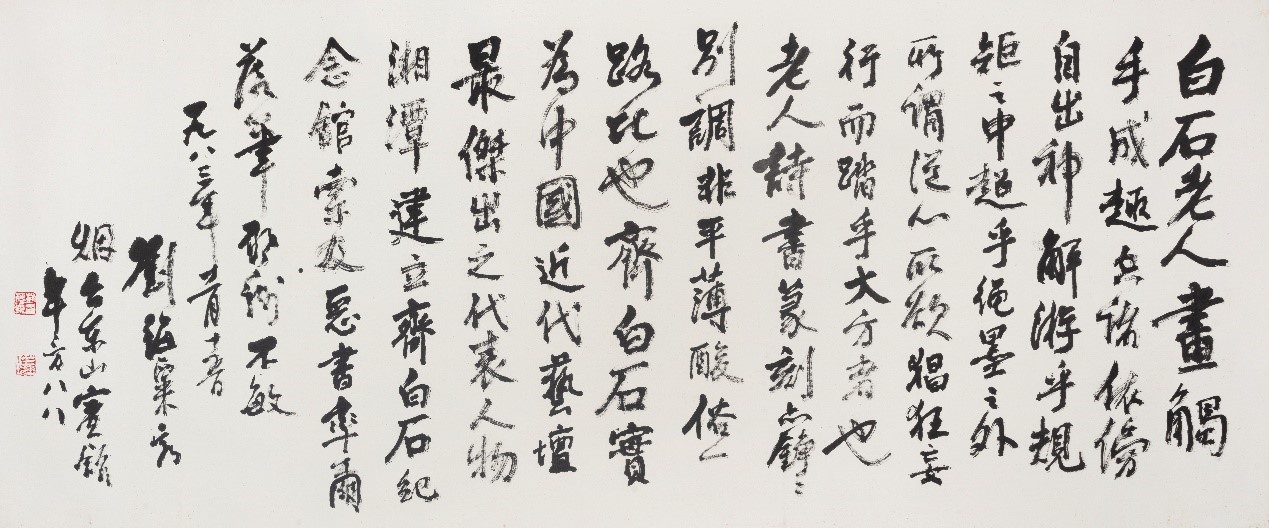 白石老人畫觸
手成趣諸依傍
自出神解游乎規
矩之中超乎繩墨之外
所謂從心所欲猖狂妄
行而蹈乎大方者也
老人詩書篆刻亦錚〻
別調非平薄酸俗一
路比也齊白石實
為中國近代藝壇
最傑出之代表人物
湘潭建立齊白石紀
念館索及惡書率爾
落筆不敏
一九八三年
劉海粟
烟台東山賓館
年方八八